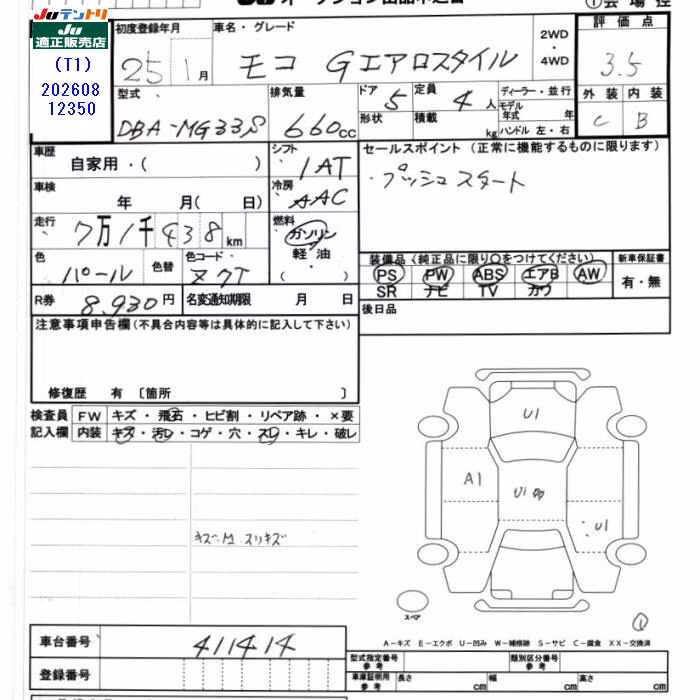 JUテントリ
JU
適正販売店
(T1)
202608
12350
① 会場控
初度登録年月 車名・グレード 2WD ・ 4WD 評価点
25年1月 モコ Gエアロスタイル 3.5
型式 排気量 ドア 定員 ディーラー・並行 外装 内装
DBA-MG33S 660cc 5 4人 モデル年式 年 C B
形状 積載 kg ハンドル 左・右
車歴 シフト セールスポイント(正常に機能するものに限ります)
自家用・( ) IAT ・プッシュスタート
車検 年 月( 日) 冷房 AAC
走行 7万1千438km 燃料 ガソリン・軽油・( )
色 パール 色替 色コード 装備品(純正品に限り○をつけてください) 新車保証書
PS PW ABS エアB AW 有・無
SR ナビ TV カワ
R券 8,930円 名変通知期限 月 日 後日品
注意事項申告欄(不具合内容等は具体的に記入して下さい)
修復歴 有 〔箇所 〕
検査員 FW キズ・飛石・ヒビ割・リペア跡・×要
記入欄 内装 キズ・汚レ・コゲ・穴・スレ・キレ・破レ
U1
A1
U1
U1
スリキズ
スペア
①
A-キズ E-エクボ U-凹み W-補修跡 S-サビ C-腐食 XX-交換済
車台番号 411414 型式指定番号 参考 類別区分番号 参考
登録番号 車庫証明用 参考 長さ cm 幅 cm 高さ cm